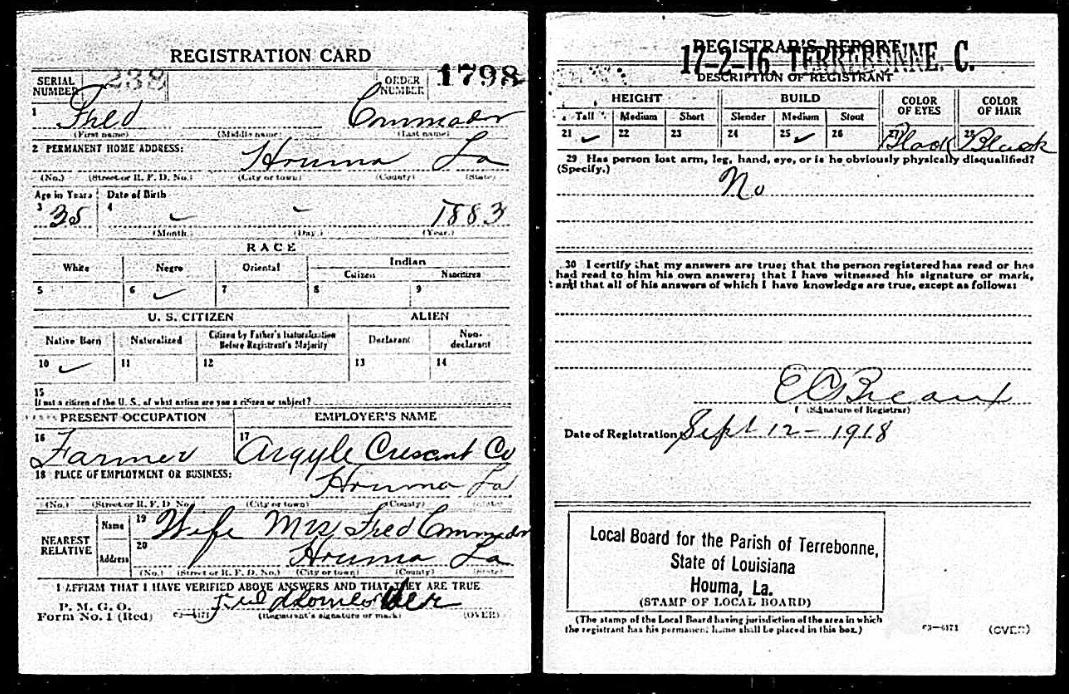 REGISTRATION CARD
SERIAL NUMBER 238 ORDER NUMBER 1798
1 Fred Commador
(First name) (Middle name) (Last name)
2 PERMANENT HOME ADDRESS: Houma La
(No.) (Street or R. F. D. No.) (City or town) (County) (State)
Age in Years Date of Birth
3 35 4 1883
(Month.) (Day.) (Year.)
RACE
White Negro Oriental Indian
Citizen Noncitizen
5 6 ✓ 7 8 9
U. S. CITIZEN ALIEN
Native Born Naturalized Citizen by Father's Naturalization Before Registrant's Majority Declarant Non-declarant
10 ✓ 11 12 13 14
15
If not a citizen of the U. S., of what nation are you a citizen or subject?
PRESENT OCCUPATION EMPLOYER'S NAME
16 Farmer 17 Argyle Crescent Co
18 PLACE OF EMPLOYMENT OR BUSINESS: Houma La
(No.) (Street or R. F. D. No.) (City or town) (County) (State)
NEAREST RELATIVE Name 19 Wife Mrs Fred Commador
Address 20 Houma La
(No.) (Street or R. F. D. No.) (City or town) (County) (State)
I AFFIRM THAT I HAVE VERIFIED ABOVE ANSWERS AND THAT THEY ARE TRUE
P. M. G. O.
Form No. 1 (Red) 03—6171 Fred (Registrant's signature or mark) (OVER)
REGISTRAR'S REPORT
17-2-16 TERREBONNE. C.
DESCRIPTION OF REGISTRANT
HEIGHT BUILD COLOR OF EYES COLOR OF HAIR
Tall Medium Short Slender Medium Stout
21 ✓ 22 23 24 25 ✓ 26 27 Black 28 Black
29 Has person lost arm, leg, hand, eye, or is he obviously physically disqualified?
(Specify.) No
30 I certify that my answers are true; that the person registered has read or has
had read to him his own answers; that I have witnessed his signature or mark,
and that all of his answers of which I have knowledge are true, except as follows:
(Signature of Registrar)
Date of Registration Sept 12 – 1918
Local Board for the Parish of Terrebonne,
State of Louisiana
Houma, La.
(STAMP OF LOCAL BOARD)
(The stamp of the Local Board having jurisdiction of the area in which
the registrant has his permanent home shall be placed in this box.)
03—6171 (OVER)